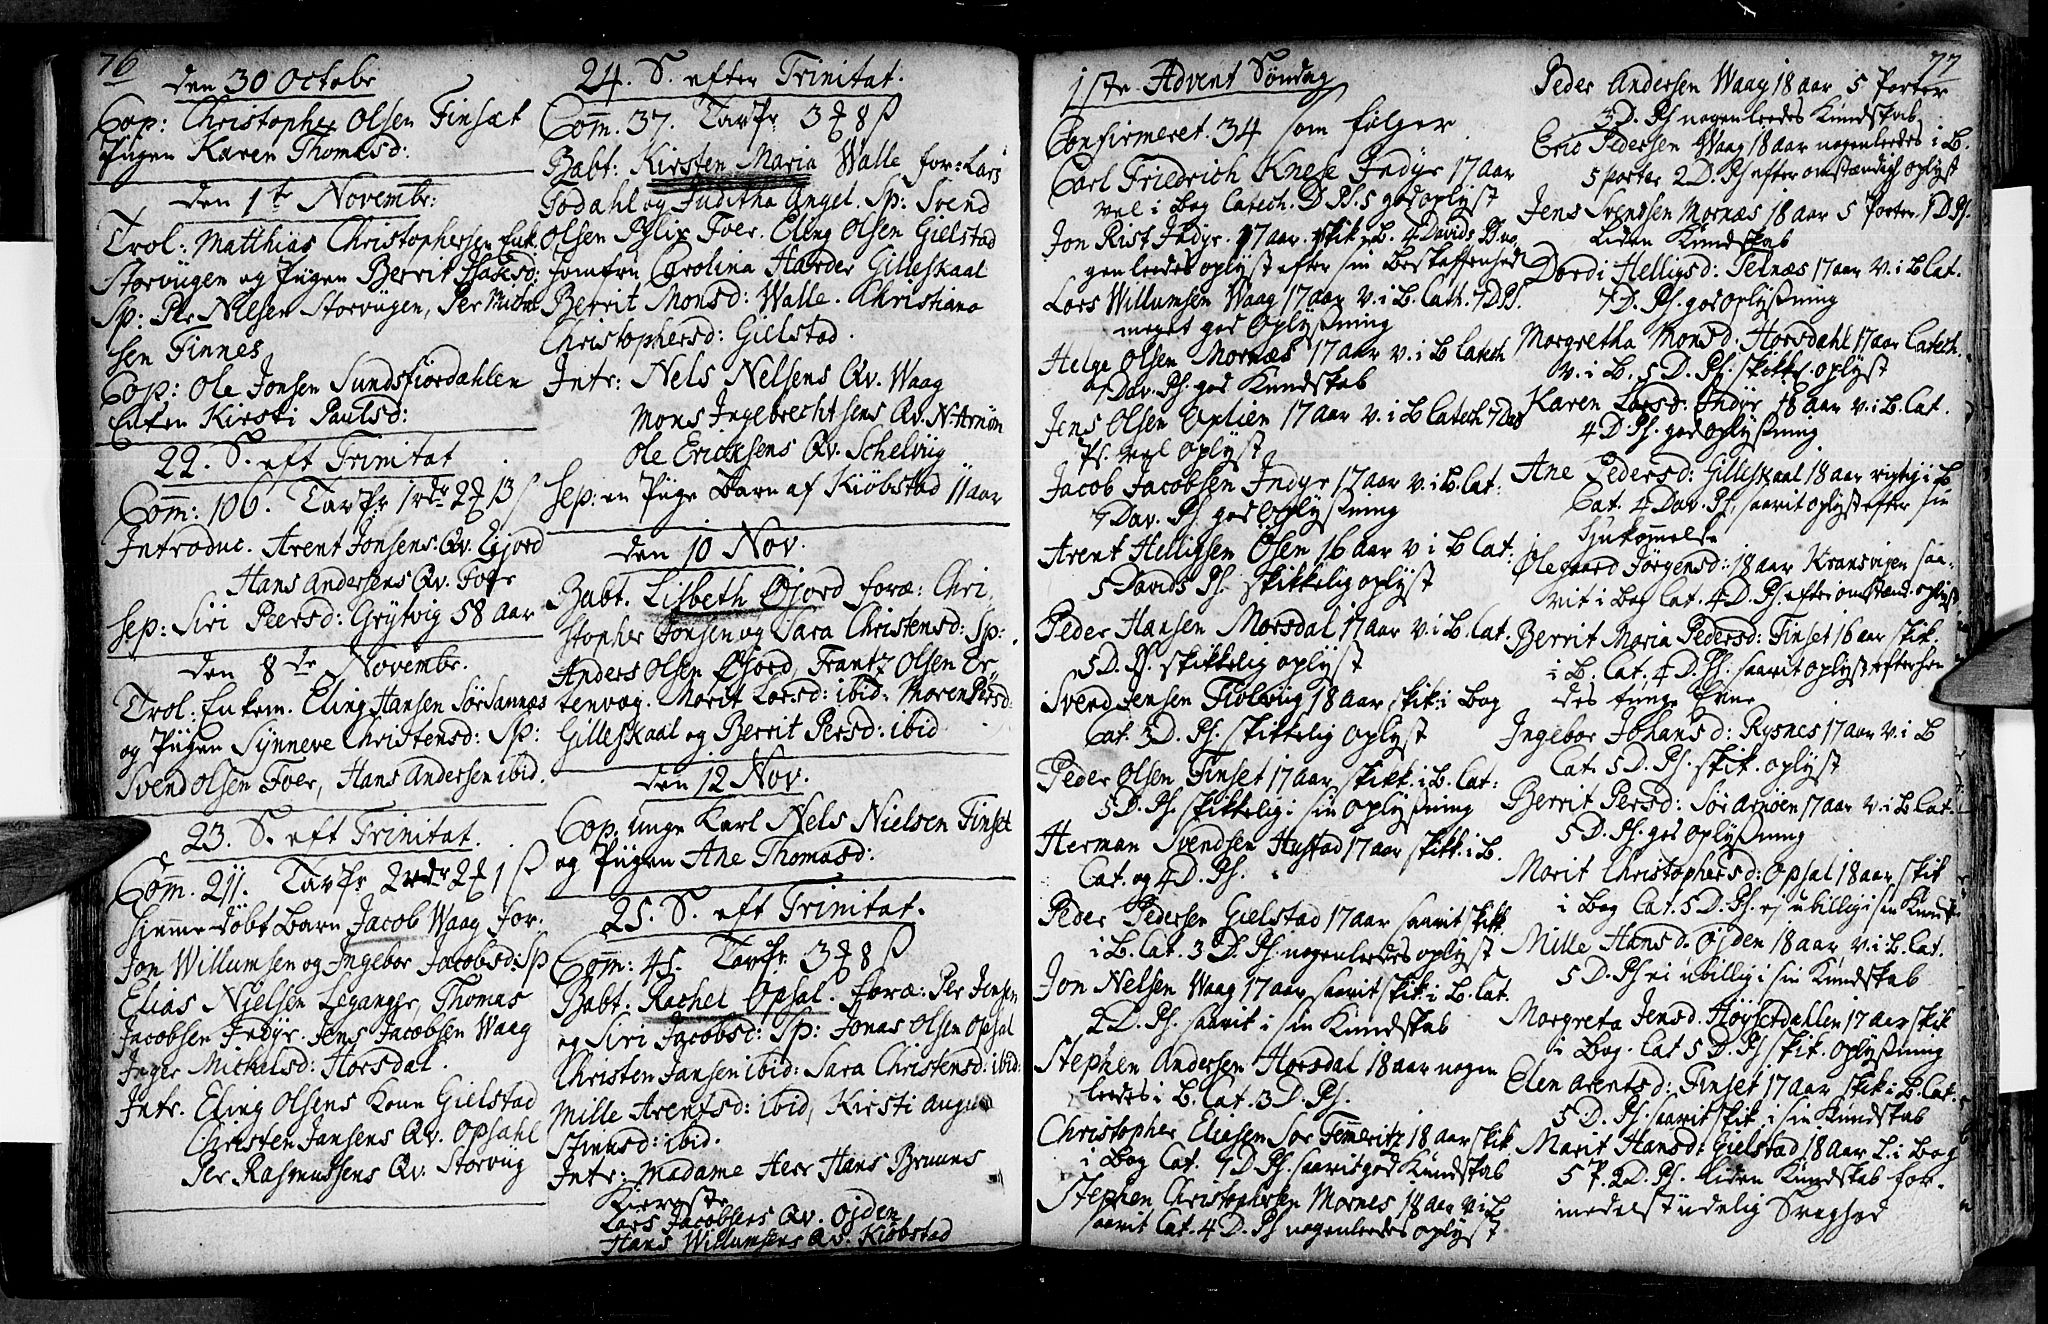 76
den 30 Octobr
Cop: Christopher Olsen Finsæt
Pigen Karen Thomasd:
den 1te Novembr:
Trol: Matthias Christophersen Enk:
Storvigen og Pigen Berrit Isaksd:
Sp: Per Nielsen Storvigen, Per Michel
sen Finnes
Cop: Ole Jonsen Sundsfiordahlen
Enken Kirsti Paulsd:
22. S. eft Trinitat
Com̅: 106. Tavfr 1rdr 2 13 ß
Introduc. Arent Jonsens Qv. Egjord
Hans Andersens Qv. Foer
Sep: Siri Peersd: Grytvig 58 aar
den 8de Novembr.
Trol: Enkem. Eling Hansen Sør Sannæs
og Pigen Synneve Christensd: Sp:
Svend Olsen Foer, Hans Andersen ibid.
23. S. eft Trinitat.
Com̅. 211. Tavfr 2rdr 2 1 ß
Hjemmedøbt Barn Jacob Waag For.
Jon Willumsen og Ingebor Jacobsd: Sp
Elias Nielsen Leganger, Thomas
Jacobsen Indyr. Jens Jacobsen Waag
Inger Michelsd: Horsdal.
Intr. Eling Olsens Kone Gielstad
Christen Jansens Qv. Opsahl
Per Rasmussens Qv. Storviig
24. S. efter Trinitat.
Com̅. 37. Tavfr 3 8 ß
Babt: Kirsten Maria Walle for: Lars
Todahl og Juditha Angel. Sp: Svend
Olsen Foer. Eling Olsen Gielstad
Jomfru Carolina Harder Gilleskaal
Berrit Monsd: Walle. Christiana
Christophersd: Gielstad.
Intr: Nels Nelsens Qv. Waag
Mons Ingebrechtsens Qv. N. Arnøn
Ole Ericksens Qv. Schelviig
Sep: en Pige Barn af Kiøbstad 11 aar
den 10 Nov.
Babt. Lisbeth Øjord foræ: Chri,
stopher Jonsen og Sara Christensd: Sp:
Anders Olsen Øjord, Frantz Olsen Er
tenvog. Morit Larsd: ibid: Maren Pedersd:
Gilleskaal og Berrit Persd: ibid
den 12 Nov.
Cop: unge Karl Nels Nielsen Finset
og Pigen Ane Thomasd:
25. S. eft Trinitat.
Com̅: 45. Tavfr 3 8 ß
Babt. Rachel Opsal. foræ: Per Jensen
og Siri Jacobsd: Sp: Jonas Olsen Opsal
Christen Jansen ibid: Sara Christensd: ibid:
Mille Arentsd: ibid, Kirsti Augu
stinusd: ibid.
Intr: Madame Herr Hans Bruuns
Lars Jacobsens Qv. Øjden
Hans Willumsens Qv. Kiøbstad
77
1ste Advent Søndag
Confirmeret 34 som følger
Carl Friedrich Knese Indyr 17 aar
vel i Bog Catech. D. Ps. 5 god oplyst
Jon Rist Indyr. 17 aar. skik. B. 4 Davids Ps no
genleedes oplyst efter sin Beskaffenhed
Lars Willumsen Waag 17 aar v. i B. Cath. 7 D Ps.
meget god Oplysning
Helge Olsen Mornæs 17 aar v. i B Catech
7 Dav. Ps. god Kundskab
Jens Olsen Oplien 17 aar v. i B Catech 7 Dav
Ps. vel oplyst
Jacob Jacobsen Indyr 17 aar v. i B. Cat:
7 Dav. Ps. god Oplysning
Arent Helligsen Øsen 16 aar v. i B Cat:
5 Davids Ps. skikkelig oplyst
Peder Hansen Morsdal 17 aar v. i B. Cat.
5 D. Ps. skikkelig oplyst
Svend Jensen Fiølviig 18 aar skik i Bog
Cat. 3 D. Ps. skikkelig oplyst
Peder Olsen Finset 17 aar skikk. i B. Cat:
5 D. Ps. skikkelig i sin Oplysning
Herman Svendsen Hustad 17 aar skikk. i B.
Cat. og 4 D. Ps.
Peder Pedersen Gielstad 17 aar saavit skikk
i B. Cat. 3 D. Ps. nogenleedes oplyst
Jon Nelsen Waag 17 aar saavit skik. i B. Cat.
2 D. Ps. saavit i sin Kundskab
Stephen Andersen Horsdal 18 aar nogen
leedes i B. Cat. 3 D. Ps.
Christopher Eliesen Sør Femeritz 18 aar skik
i Bog Cat. 7 D. Ps. saavit god Kundskab
Stephen Christophersen Mornes 18 aar v. i B
saavit Cat. 4 D. Ps nogenleedes oplyst
Peder Andersen Waag 18 aar 5 Parter
3 D. Ps nogenleedes Kundskab
Eric Pedersen Waag 18 aar nogenleedes i B.
5 parter 2 D. Ps efter omstændigh oplyst
Jens Svendsen Mornæs 18 aar 5 Parter. 1 D. Ps.
Liden Kundskab
Dordi Helligsd: Selnæs 17 aar v. i B Cat.
7 D. Ps. god oplysning
Morgretha Monsd: Horsdahl 17 aar Catech.
v. i B. 5 D. Ps. skikk. oplyst
Karen Larsd: Indyr 18 aar v. i B. Cat.
4 D Ps. god oplysning
Ane Pedersd: Gilleskaal 18 aar rigtig i B
Cat. 4 Dav. Ps. saavit oplyst efter sin
Hjukom̅else
Olegaard Jørgensd: 18 aar Kransvigen saa-
vit i Bog Cat. 4 D. Ps. efter omstænd. oplyst
Berrit Maria Pedersd: Finset 16 aar skik.
i B. Cat. 4 D. Ps. saavit oplyst efter hen
des tunge Evne
Ingebor Johansd: Rysnes 17 aar v. i B
Cat. 5 D. Ps. skik. oplyst
Berrit Persd: Sør Arnøen 17 aar v. i B Cat.
5 D. Ps. god oplysning
Morit Christophersd: Opsal 18 aar skik
i Bog Cat. 5 D. Ps. ej ubillig i sin Kundsk
Mille Hansd. Øjden 18 aar v. i B. Cat.
5 D. Ps ei ubillig i sin Kundskab
Morgreta Jensd. Høysetdahlen 17 aar skik
i Bog. Cat 5 D. Ps skik. oplysning
Elen Arentsd: Finset 17 aar skik i B. Cat.
5 D. Ps. saavit skik. i sin Kundskab
Marit Hansd: Gielstad 18 aar L. i Bog
5 P. 2 D. Ps. Liden Kundskab for-
medelst udelig Svaghed